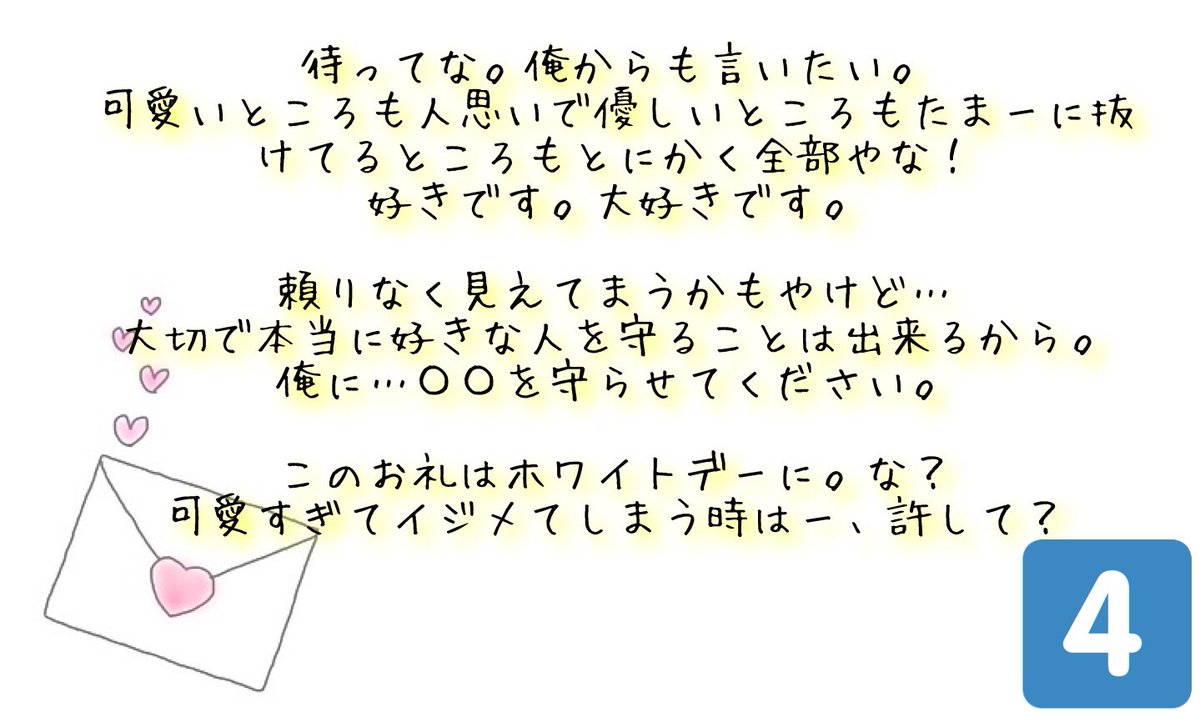 待ってな。俺からも言いたい。
可愛いところも人思いで優しいところもたまーに抜
けてるところもとにかく全部やな！
好きです。大好きです。
頼りなく見えてまうかもやけど…
大切で本当に好きな人を守ることは出来るから。
俺に…〇〇を守らせてください。
このお礼はホワイトデーに。な？
可愛すぎてイジメてしまう時はー、許して？
4